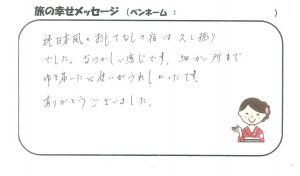 旅の幸せメッセージ（ペンネーム：　　　　）
純日本風のおもてなしの宿は久し振り
でした。なつかしい感じです。細かい所まで
ゆき届いた心遣いがうれしかったです。
ありがとうございました。